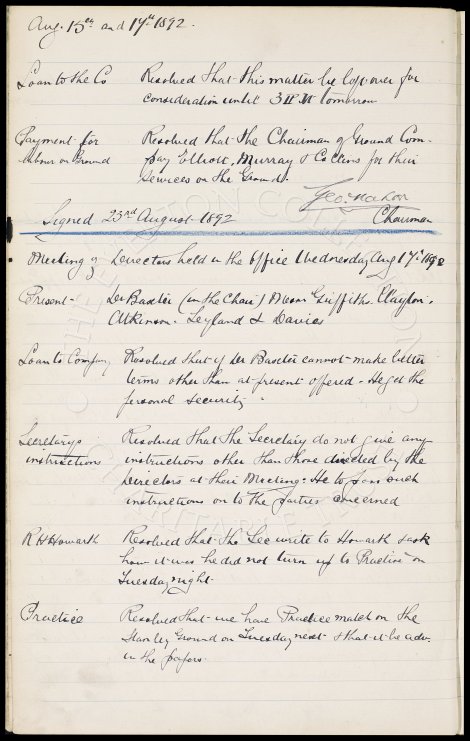 Aug. 15th and 17th 1892.
Loan to the Co Resolved that this matter be left over for
consideration until tomorrow
Payment for Resolved that the Chairman of Ground Com-
labour on Ground pay Elliott, Murray & Collins for their
services on the Ground.
Geo Mahon
Signed 23rd August 1892 Chairman
Meeting of Directors held in the Office Wednesday Aug 17th 1892
Present - Dr Baxter (in the Chair) Messrs Griffiths. Clayton.
Atkinson. Leyland & Davies
Loan to Company Resolved that if Dr Baxter cannot make better
terms other than at present offered - He get the
personal security
Secretarys Resolved that the Secretary do not give any
instructions instructions other than those directed by the
Directors at their Meeting. He to pass such
instructions on to the parties concerned
R H Howarth Resolved that the Sec write to Howarth & ask
how it was he did not turn up to Practice on
Tuesday night.
Practice Resolved that we have Practice match on the
Stanley Ground on Tuesday next & that it be adv.
in the papers.